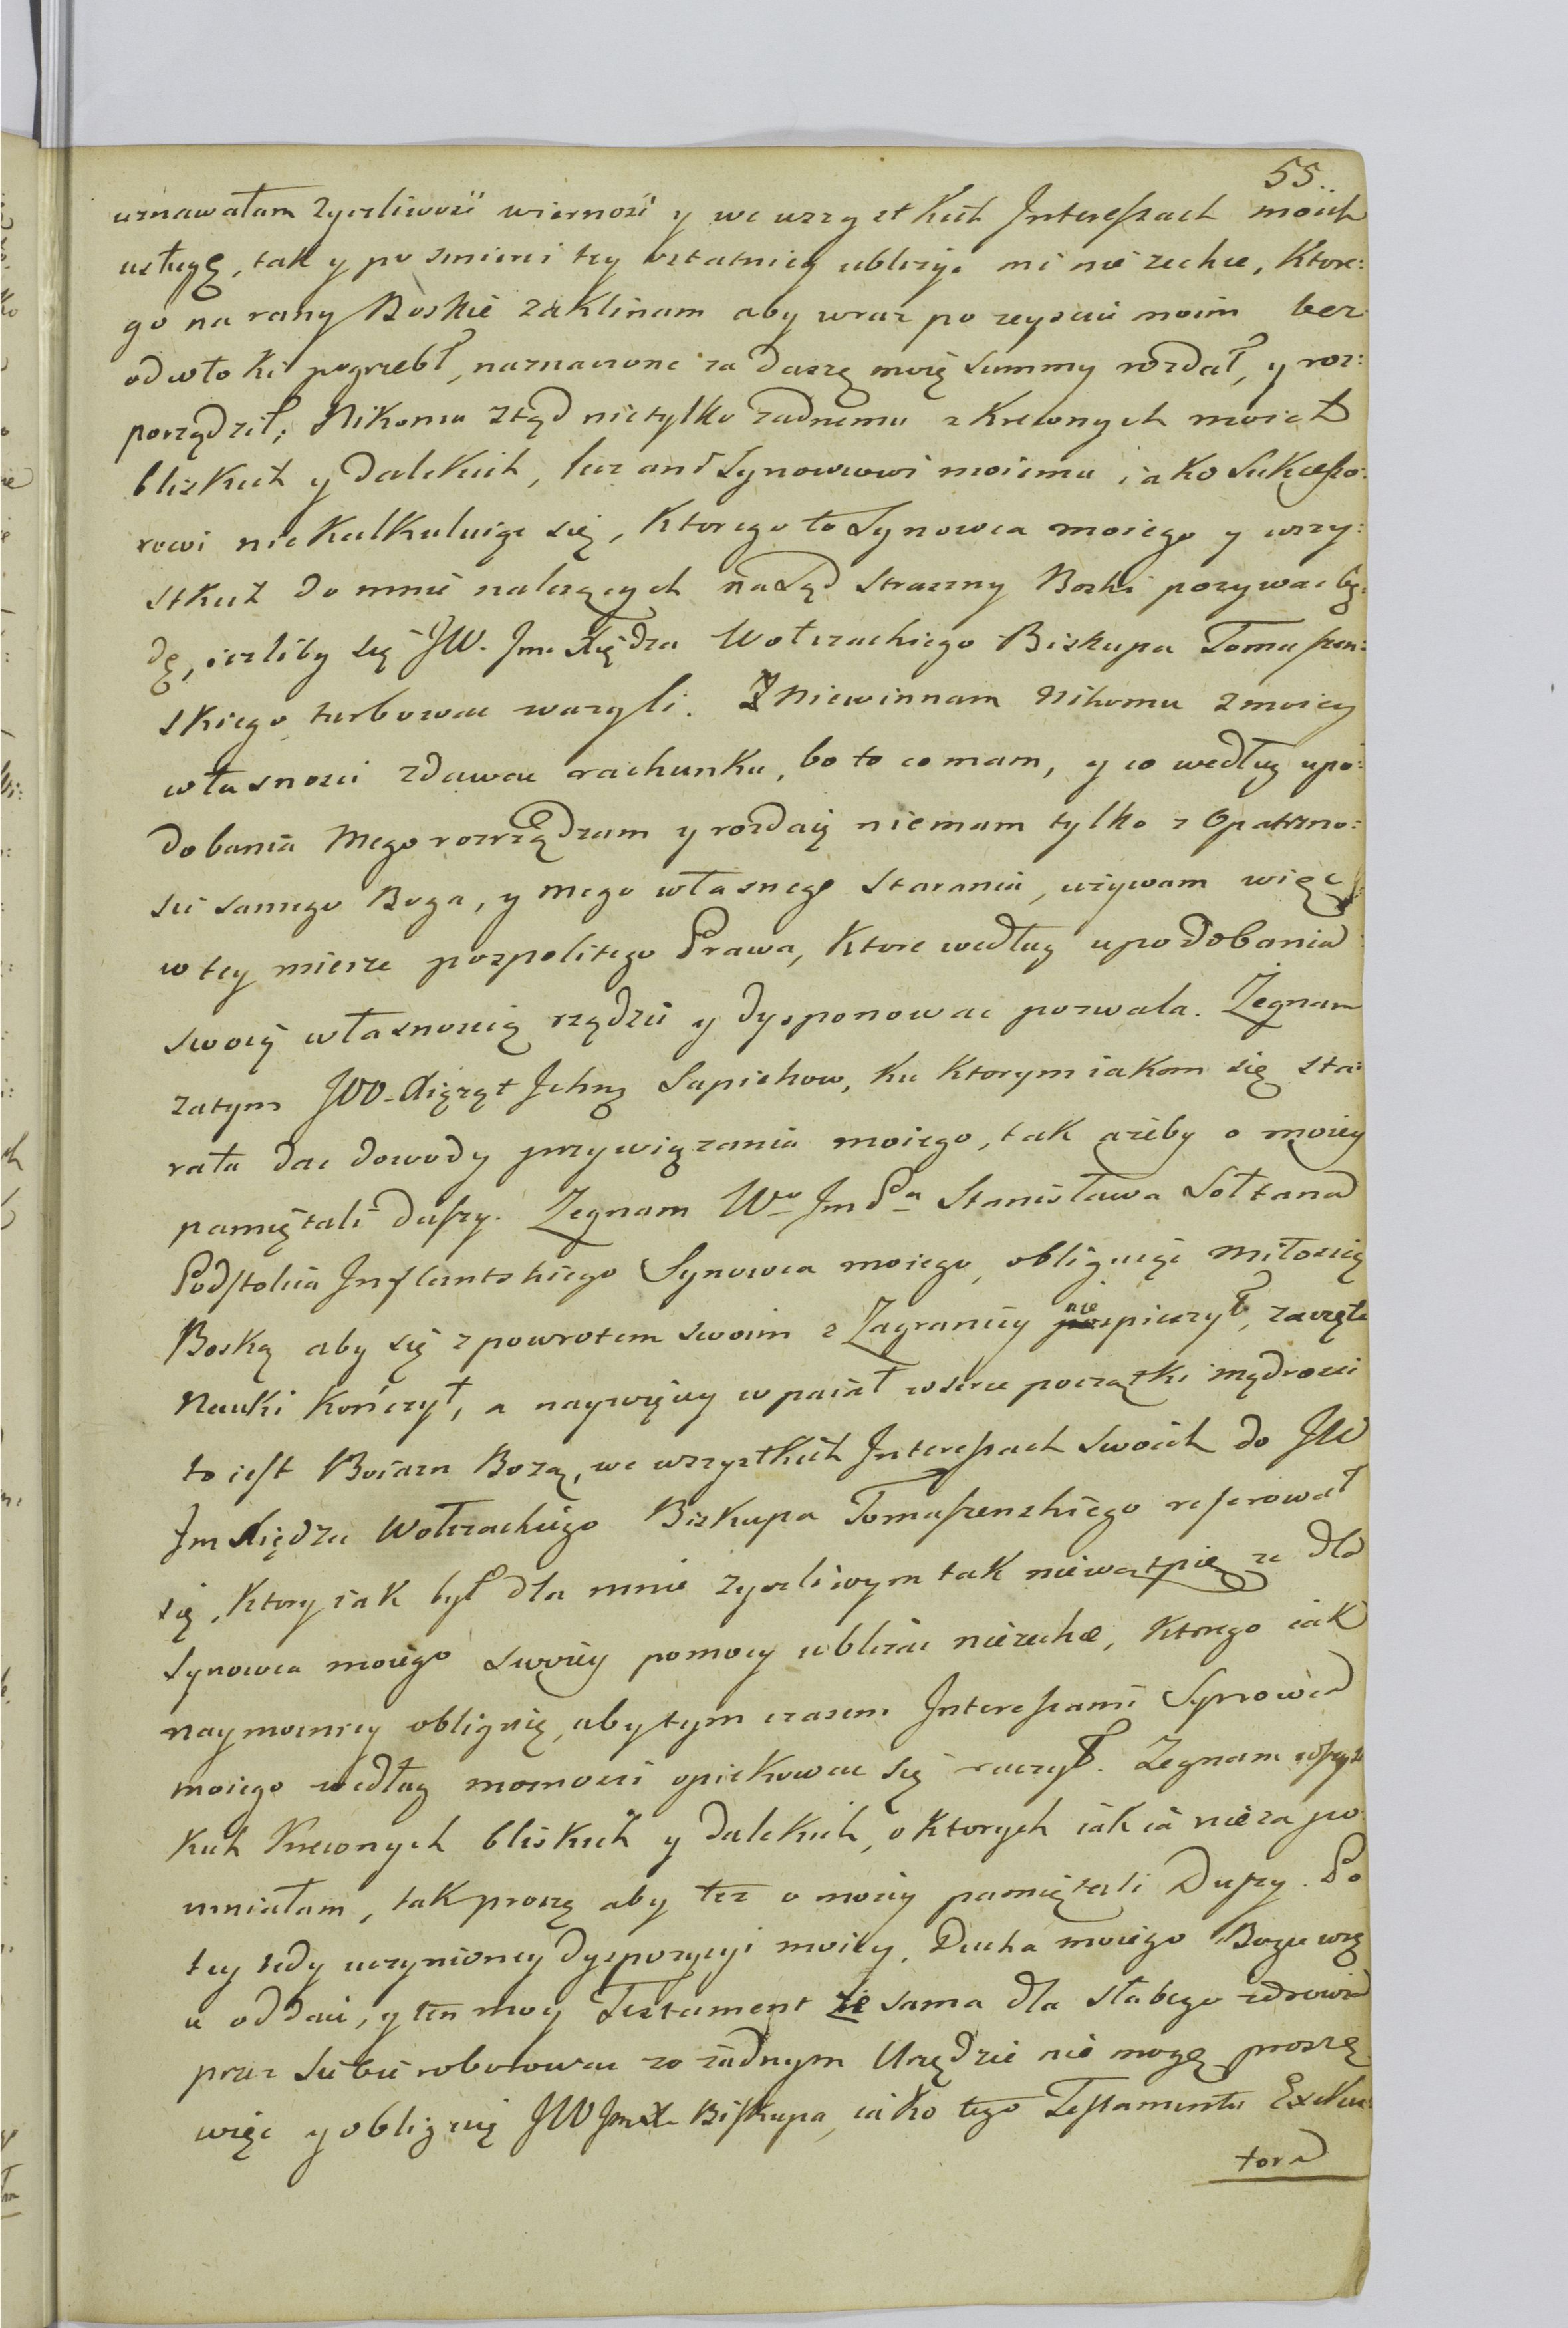 55..
uznawałam zyczliwosc wiernosc y we wszystkich Interessach moich
usługę, tak y po smierci tey ostatniey ubliżyc mi nie zechce, Ktore:
go na rany Boskie zaklinam aby wraz po zeysciu moim bez
odwłoki pogrzebł, naznaczone za duszę moię Summy rozdał, y roz:
porządził, Nikomu ztąd nietylko zadnemu z Krewnych moich
bliskich y dalekich, lecz ani Synowcowi moiemu iako Sukcesso:
rowi niekalkuluiąc się, Ktorego to Synowca moiego y wszy:
stkich do mnie należących na Sąd straszny Boski pozywac bę:
dę, ieżliby się JW. Jm. Xiędza Wołczackiego Biskupa Tomassen:
skiego turbowac ważyli. Niewinnam Nikomu z moiey
własnosci zdawac rachunku, bo to co mam, y co według upo:
dobania Mego rozrządzam y rozdaię niemam tylko z Opatrzno:
sci samego Boga, y mego własnego starania, używam więc
w tey mierze pospolitego Prawa, Ktore według upodobania
swoią własnoscią rządzic y dysponowac pozwala. Żegnam
zatym JOO. Xiążąt Jchmę Sapiehow, ku ktorym iakom się sta:
rała dac dowody przywiązania moiego, tak ażeby o moiey
pamiętali duszy. Żegnam Wo JmPa Stanisława Sołtana
Podstolica Inflantskiego Synowca moiego, obliguięc miłoscią
Boską aby się z powrotem swoim z Zagranicy nie spieszył, zaczęte
Nauki kończył, a naywięcey wpaiał w serce początki mądrosci
to iest Boiazn Bozą, we wszystkich Interessach swoich do JW
Jm Xiędza Wołczackiego Biskupa Tomassenskiego referował
się, Ktory iak był dla mnie zyczliwym tak niewątpię ze dla
Synowca moiego swoiey pomocy ubliżac niezechce, Ktorego iak
naymocniey obliguię, aby tym czasem Interessami Synowca
moiego według moznosci opiekowac się raczył. Żegnam wszyst
kich Krewnych bliskich y dalekich, o ktorych iak ia nie zapo
mniałam, tak proszę aby też o moiey pamiętali Duszy. Po
tey tedy uczynioney dyspozycyi moiey, Ducha moiego Bogu wrę
u oddaię, y ten moy Testament że sama dla słabego zdrowia
przez siebie roborowac na żadnym Urzędzie nie mogę proszę
więc y obliguię JW Jm X. Biskupa, iako tego Testamentu Exeku
tora